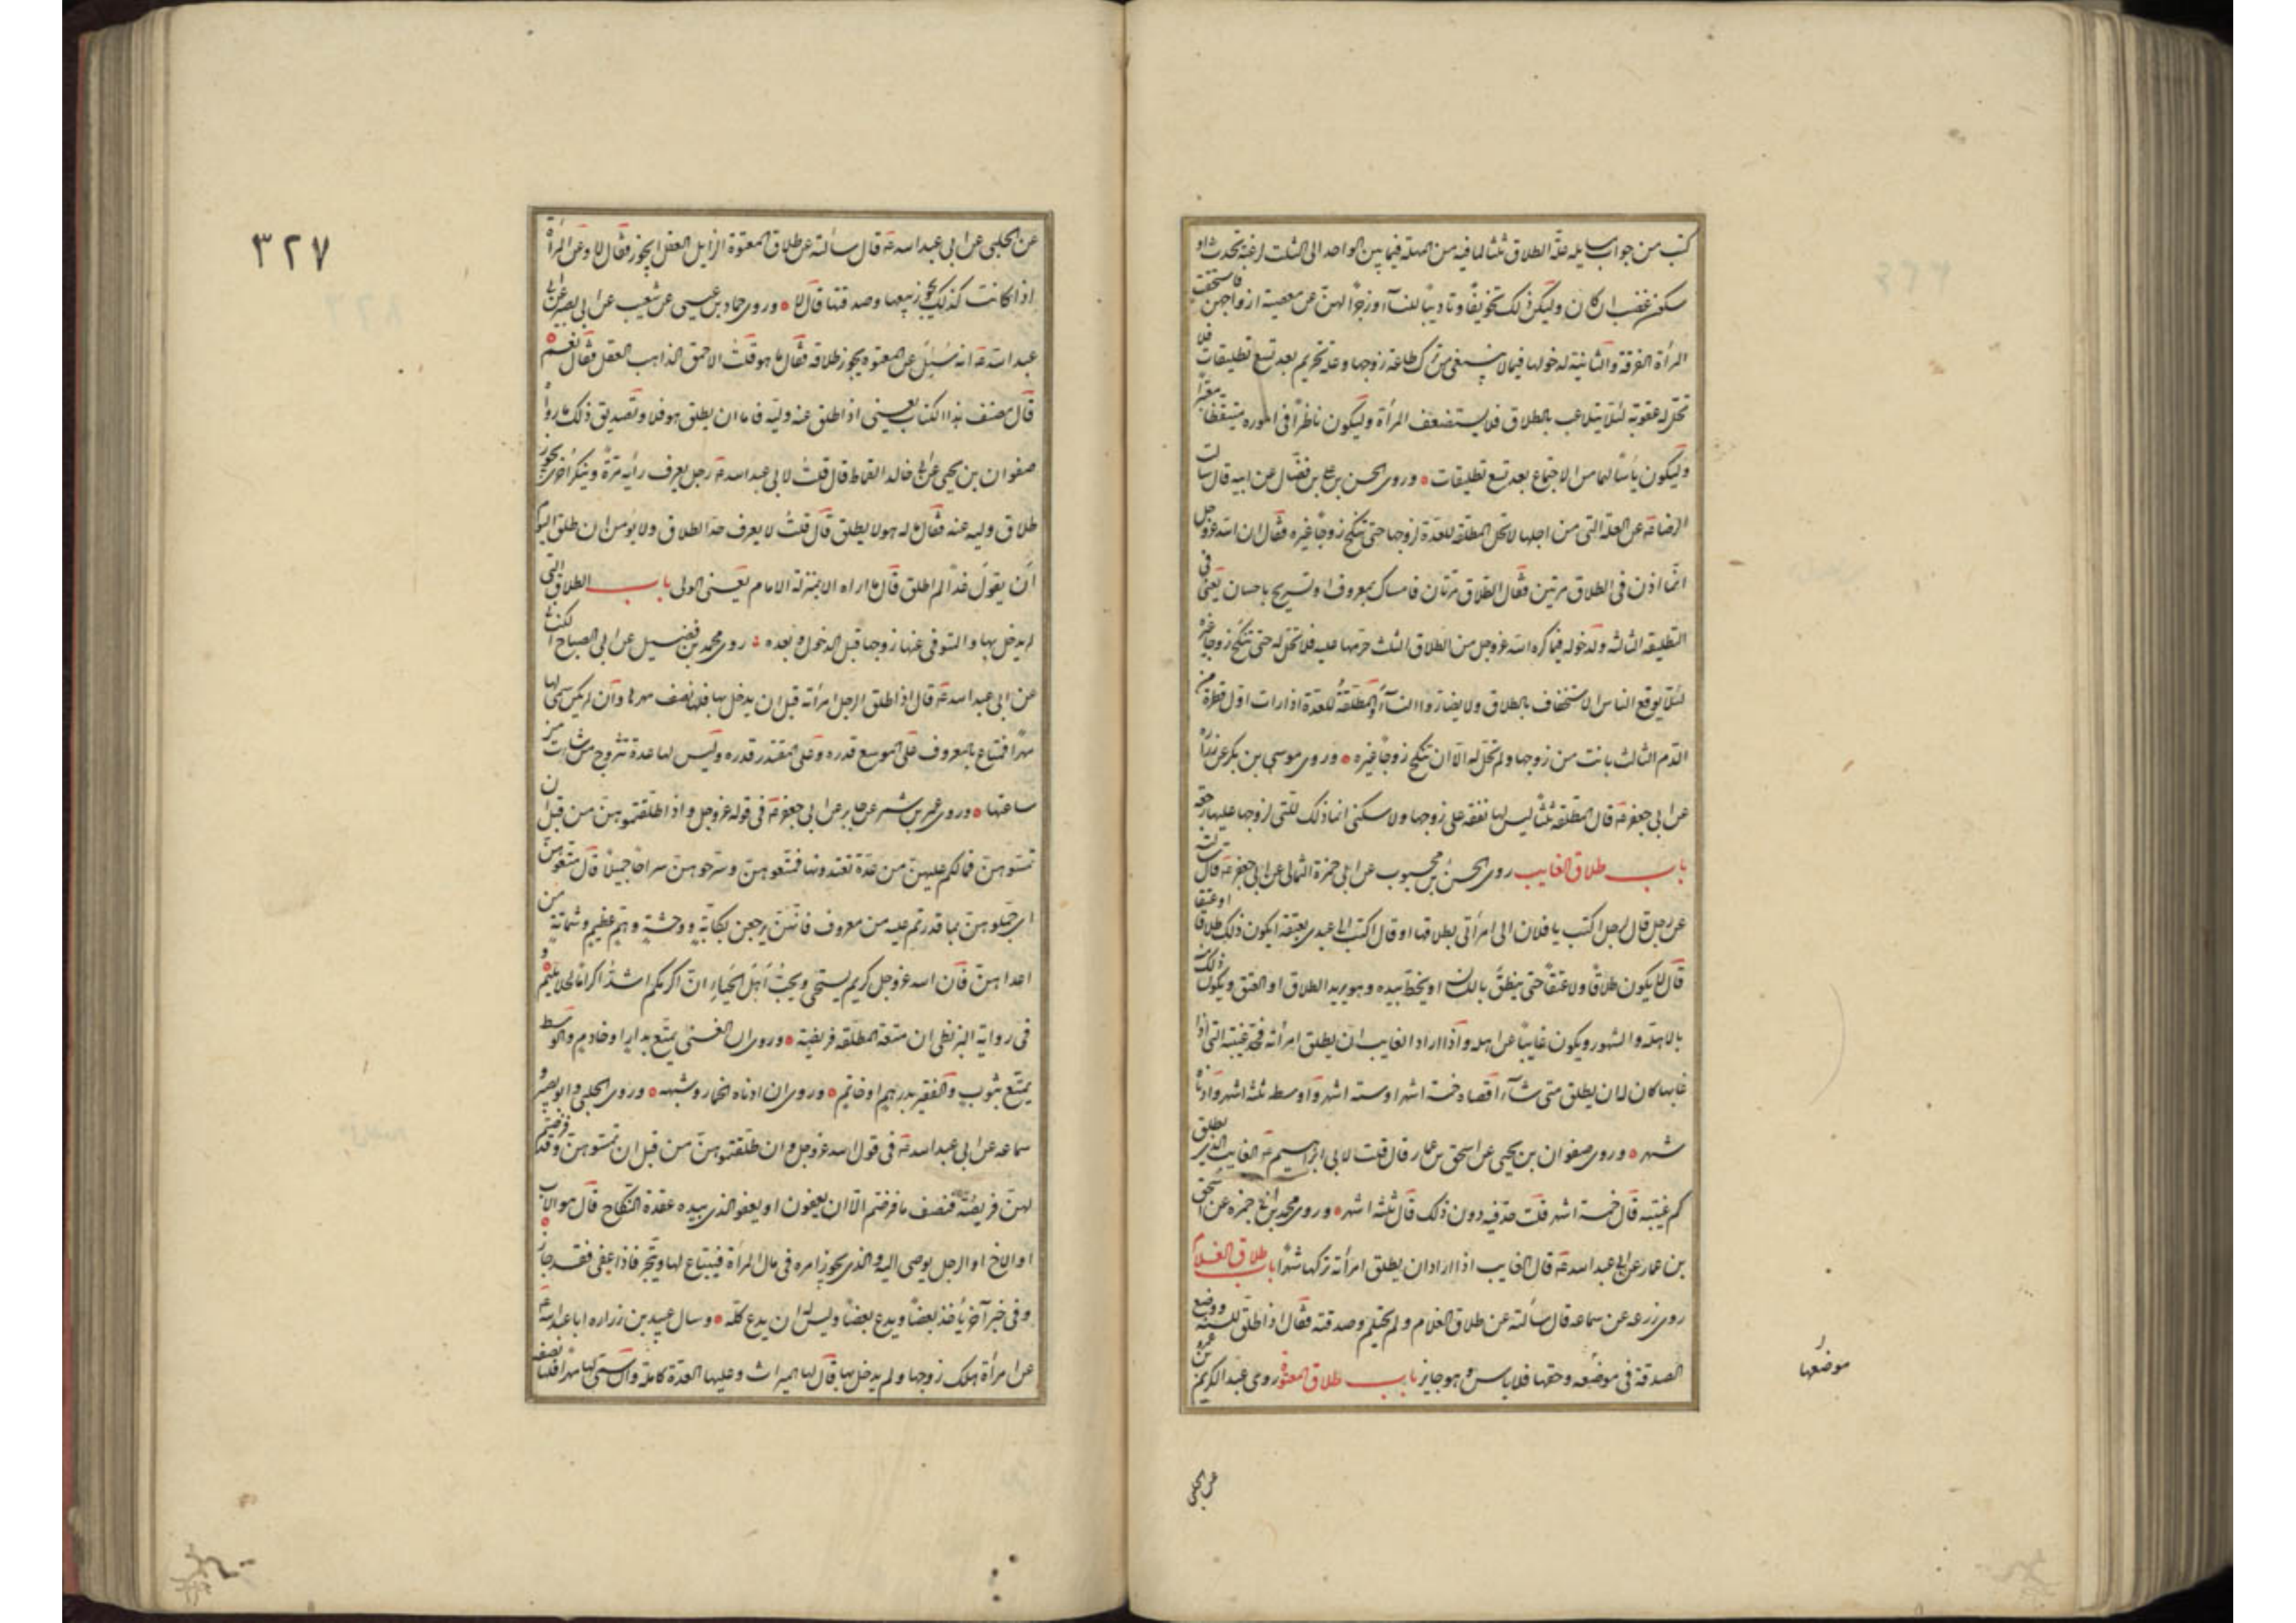 كتب من جواب مسايله علة الطلاق ثلثا لما فيه من المهلة فيما بين الواحد الى الثلث لرغبة تحدث او
سكون غضب ان كان وليكن ذلك تخويفا وتاديبا للنسآء وزجرا لهن عن معصية ازواجهن فاستحقت
المرأة الفرقة والثانية لدخولها فيما لا ينبغى من ترك طاعة زوجها وعلة تحريم بعد تسع تطليقات فلا
تحل له عقوبة لئلا يتلاعب بالطلاق فلا يستضعف المرأة وليكون ناظرا فى اموره متيقظا معتبرا
وليكون يأسا لهما من الاجتماع بعد تسع تطليقات وروى الحسن بن على بن فضال عن ابيه قال سالت
الرضا عه عن العلة التى من اجلها لا تحل المطلقة للعدة لزوجها حتى تنكح زوجا غيره فقال ان الله عز وجل
انما اذن فى الطلاق مرتين فقال الطلاق مرتان فامساك بمعروف او تسريح باحسان يعنى فى
التطليقة الثالثة ولدخوله فيما كره الله عز وجل من الطلاق الثلث حرمها عليه فلا تحل له حتى تنكح زوجا غيره
لئلا يوقع الناس الاستخفاف بالطلاق ولا يضاروا النسآء والمطلقة للعدة اذا رات اول قطرة من
الدم الثالث بانت من زوجها ولم تحل له الا ان تنكح زوجا غيره وروى موسى بن بكر عن زراره
عن ابى جعفر عه قال المطلقة ثلثا ليس لها نفقة على زوجها ولا سكنى انما ذلك للتى لزوجها عليها رجعة
باب طلاق الغايب روى الحسن بن محبوب عن ابى حمزة الثمالى عن ابى جعفر عه قال سالته
عن رجل قال لرجل اكتب يا فلان الى امرأتى بطلاقها او قال اكتب الى عبدى بعتقه ايكون ذلك طلاقا او عتقا
قال لا يكون طلاقا ولا عتقا حتى ينطق باللسان او يخط بيده وهو يريد الطلاق او العتق ويكون ذلك
بالاهلة والشهور ويكون غايبا عن اهله واذا اراد الغايب ان يطلق امرأته فحد غيبته التى اذا
غابها كان له ان يطلق متى شآء اقصاه خمسة اشهر او ستة اشهر واوسطه ثلثة اشهر وادناه
شهر وروى صفوان بن يحيى عن اسحق بن عمار قال قلت لابى ابراهيم عه الغايب الذى يطلق
كم غيبته قال خمسة اشهر قلت حد فيه دون ذلك قال ثلثة اشهر وروى محمد بن ابى حمزه عن اسحق
بن عمار عن ابى عبد الله عه قال الغايب اذا اراد ان يطلق امرأته تركها شهرا باب طلاق الغلام
روى زرعه عن سماعه قال سألته عن طلاق الغلام ولم يحتلم وصدقته فقال اذا طلق للسنة ووضع
الصدقة فى موضعه وحقها فلا باس وهو جايز باب طلاق المعتوه روى عبد الكريم بن عمرو
موضعها
عن الحلبى
٣٢٧
عن الحلبى عن ابى عبد الله عه قال سألته عن طلاق المعتوه الزايل العقل ايجوز فقال لا وعن المرأة
اذا كانت كذلك يجوز بيعها وصدقتها قال لا وروى حماد بن عيسى عن شعيب عن ابى بصير عن ابى
عبد الله عه انه سئل عن المعتوه يجوز طلاقه فقال ما هو قلت الاحمق الذاهب العقل فقال نعم
قال مصنف هذا الكتاب يعنى اذا طلق عنه وليه فاما ان يطلق هو فلا وتصديق ذلك ما رواه
صفوان بن يحيى عن ابى خالد القماط قال قلت لابى عبد الله عه رجل يعرف رأيه مرة وينكر اخرى يجوز
طلاق وليه عنه فقال ما له هو لا يطلق قال قلت لا يعرف حد الطلاق ولا يؤمن ان طلق اليوم
ان يقول غدا لم اطلق قال ما اراه الا بمنزلة الامام يعنى الولى باب الطلاق التى
لم يدخل بها والمتوفى عنها زوجها قبل الدخول وبعده روى محمد بن فضيل عن ابى الصباح الكنانى
عن ابى عبد الله عه قال اذا طلق الرجل امرأته قبل ان يدخل بها فلها نصف مهرها وان لم يكن سمى لها
مهرا فمتاع بالمعروف على الموسع قدره وعلى المقتر قدره وليس لها عدة تتزوج من شاءت من
ساعتها وروى عمرو بن شمر عن جابر عن ابى جعفر عه فى قوله عز وجل واذا طلقتموهن من قبل ان
تمسوهن فما لكم عليهن من عدة تعتدونها فمتعوهن وسرحوهن سراحا جميلا قال متعوهن
اى جملوهن بما قدرتم عليه من معروف فانهن يرجعن بكابة ووحشة وهم عظيم وشماتة من
اعدائهن فان الله عز وجل كريم يستحى ويحب اهل الحياء ان اكرمكم اشد اكراما لحلايلهم و
فى رواية البزنطى ان متعة المطلقة فريضة وروى ان الغنى يمتع بدار او خادم والوسط
يمتع بثوب والفقير بدرهم او خاتم وروى ان ادناه الخمار وشبهه وروى الحلبى وابو بصير و
سماعه عن ابى عبد الله عه فى قول الله عز وجل وان طلقتموهن من قبل ان تمسوهن وقد فرضتم
لهن فريضة فنصف ما فرضتم الا ان يعفون او يعفو الذى بيده عقدة النكاح قال هو الاب
او الاخ او الرجل يوصى اليه والذى يجوز امره فى مال المرأة فيبتاع لها ويتجر فاذا عفى فقد جاز
وفى خبر آخر يأخذ بعضا ويدع بعضا وليس له ان يدع كله وسال عبيد بن زراره ابا عبد الله عه
عن امرأة هلك زوجها ولم يدخل بها قال لها الميراث وعليها العدة كاملة وان سمى لها مهرا فلها نصفه